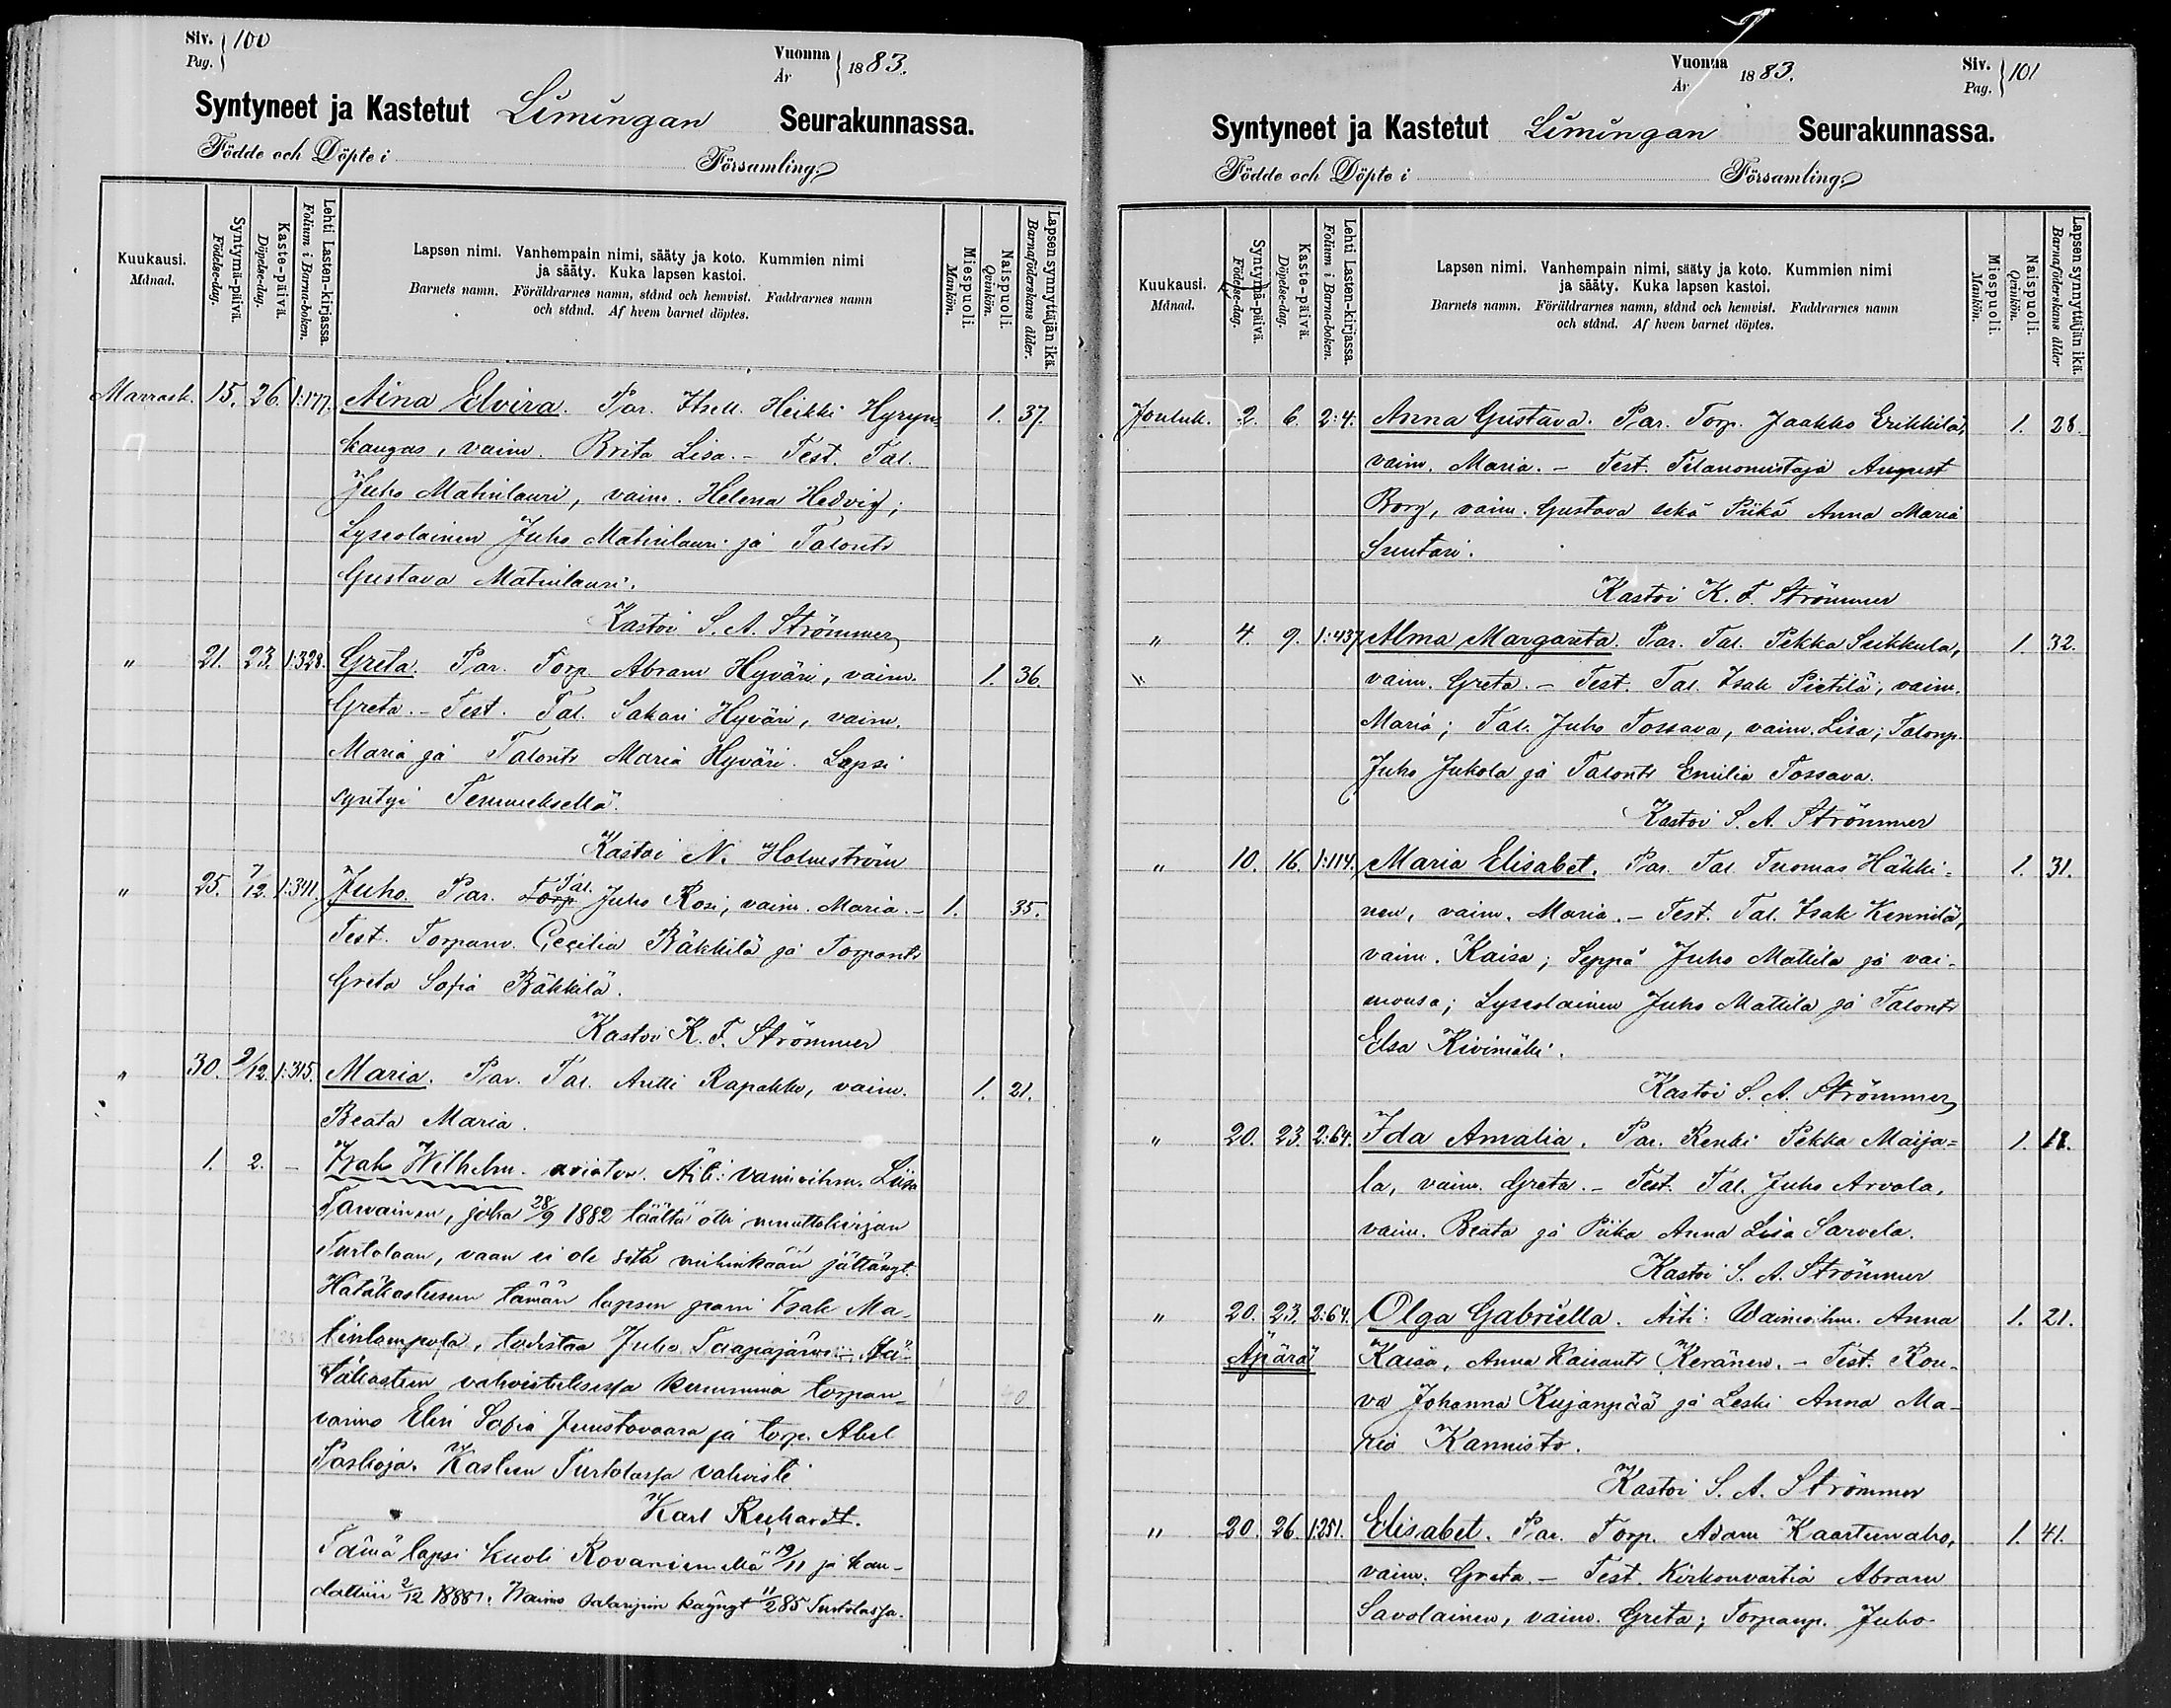 Siv. Pag. 100
Vuonna År 1883.
Syntyneet ja Kastetut Limingan Seurakunnassa.
Födde och Döpte i Församling.
Kuukausi. Månad.
Syntymä-päivä. Födelse-dag.
Kaste-päivä. Döpelse-dag.
Lehti Lasten-kirjassa. Folium i Barna-boken.
Lapsen nimi. Vanhempain nimi, sääty ja koto. Kummien nimi
ja sääty. Kuka lapsen kastoi.
Barnets namn. Föräldrarnes namn, stånd och hemvist. Faddrarnes namn
och stånd. Af hvem barnet döptes.
Miespuoli. Mankön.
Naispuoli. Qvinkön.
Lapsen synnyttäjän ikä. Barnaföderskans ålder.
Marrask. 15. 26. 1:177. Aina Elvira. Par. Itsell. Heikki Hyryn- 1. 37.
kangas, vaim. Brita Lisa. - Test. Tal.
Juho Matinlauri, vaim. Helena Hedvig;
Lyseolainen Juho Matinlauri ja Talontr
Gustava Matinlauri.
Kastoi S. A. Strömmer
" 21. 23. 1:328. Greta. Par. Torp. Abram Hyväri, vaim. 1. 36.
Greta. - Test. Tal. Sakari Hyväri, vaim.
Maria ja Talontr Maria Hyväri. Lapsi
syntyi Temmeksellä.
Kastoi N. Holmström
" 25. 7/12. 1:341. Juho. Par. Torp Tal. Juho Rosi, vaim. Maria. - 1. 35.
Test. Torpanv. Cecilia Bäkkilä ja Torpantr
Greta Sofia Bäkkilä.
Kastoi K. F. Strömmer
" 30. 2/12. 1:315. Maria. Par. Tal. Antti Rapakko, vaim. 1. 21.
Beata Maria.
1. 2. - Isak Wilhelm. avioton. Äiti: vaimoihm. Liisa
Tarvainen, joka 28/9 1882 täältä otti muuttokirjan
Turtolaan, vaan ei ole sitä mihinkään jättänyt.
Hätäkasteen tämän lapsen pani Isak Ma-
tinlampola, todistaa Juho Taapajärvi. Hä-
täkasteen vahvistuksessa kummina torpan-
vaimo Elin Sofia Juustovaara ja torp. Abel
Paskoja. Kasteen Turtolassa vahvisti
Karl Reuhardt.
Tämä lapsi kuoli Rovaniemellä 19/11 ja hau-
dattiin 2/12 1888. Waimo salavuim käynyt 11/2 85 Turtolassa.
Vuonna År 1883.
Siv. Pag. 101
Syntyneet ja Kastetut Limingan Seurakunnassa.
Födde och Döpte i Församling.
Kuukausi. Månad.
Syntymä-päivä. Födelse-dag.
Kaste-päivä. Döpelse-dag.
Lehti Lasten-kirjassa. Folium i Barna-boken.
Lapsen nimi. Vanhempain nimi, sääty ja koto. Kummien nimi
ja sääty. Kuka lapsen kastoi.
Barnets namn. Föräldrarnes namn, stånd och hemvist. Faddrarnes namn
och stånd. Af hvem barnet döptes.
Miespuoli. Mankön.
Naispuoli. Qvinkön.
Lapsen synnyttäjän ikä. Barnaföderskans ålder
Jouluk. 2. 6. 2:4. Anna Gustava. Par. Torp. Jaakko Erikkilä, 1. 28.
vaim. Maria. - Test. Tilanomistaja August
Borg, vaim. Gustava sekä Piika Anna Maria
Suutari.
Kastoi K. F. Strömmer
" 4. 9. 1:437 Alma Margareta. Par. Tal. Pekka Seikkula, 1. 32.
" vaim. Greta. - Test. Tal. Isak Pietilä, vaim.
Maria; Tal. Juho Tossava, vaim. Lisa; Talonp.
Juho Jukola ja Talontr Emilia Tossava.
Kastoi S. A. Strömmer
" 10. 16. 1:114. Maria Elisabet. Par. Tal Tuomas Häkki- 1. 31.
nen, vaim. Maria. - Test. Tal. Isak Kennilä,
vaim. Kaisa; Seppä Juho Mattila ja vai-
monsa; Lyseolainen Juho Mattila ja Talontr
Elsa Kivimäki.
Kastoi S. A. Strömmer
" 20. 23. 2:64. Ida Amalia. Par. Renki Pekka Maija- 1. 18.
la, vaim. Greta. - Test. Tal. Juho Arvola,
vaim. Beata ja Piika Anna Lisa Sarvela.
Kastoi S. A. Strömmer
" 20. 23. 2:64. Olga Gabriella. Äiti: Waimoihm. Anna 1. 21.
Äpärä Kaisa, Anna Kaisantr Keränen. - Test. Rou-
va Johanna Kujanpää ja Leski Anna Ma-
ria Kannisto.
Kastoi S. A. Strömmer
" 20. 26. 1:251. Elisabet. Par. Torp. Adam Kaartinaho, 1. 41.
vaim. Greta. - Test. Kirkonvartia Abram
Savolainen, vaim. Greta; Torpanp. Juho